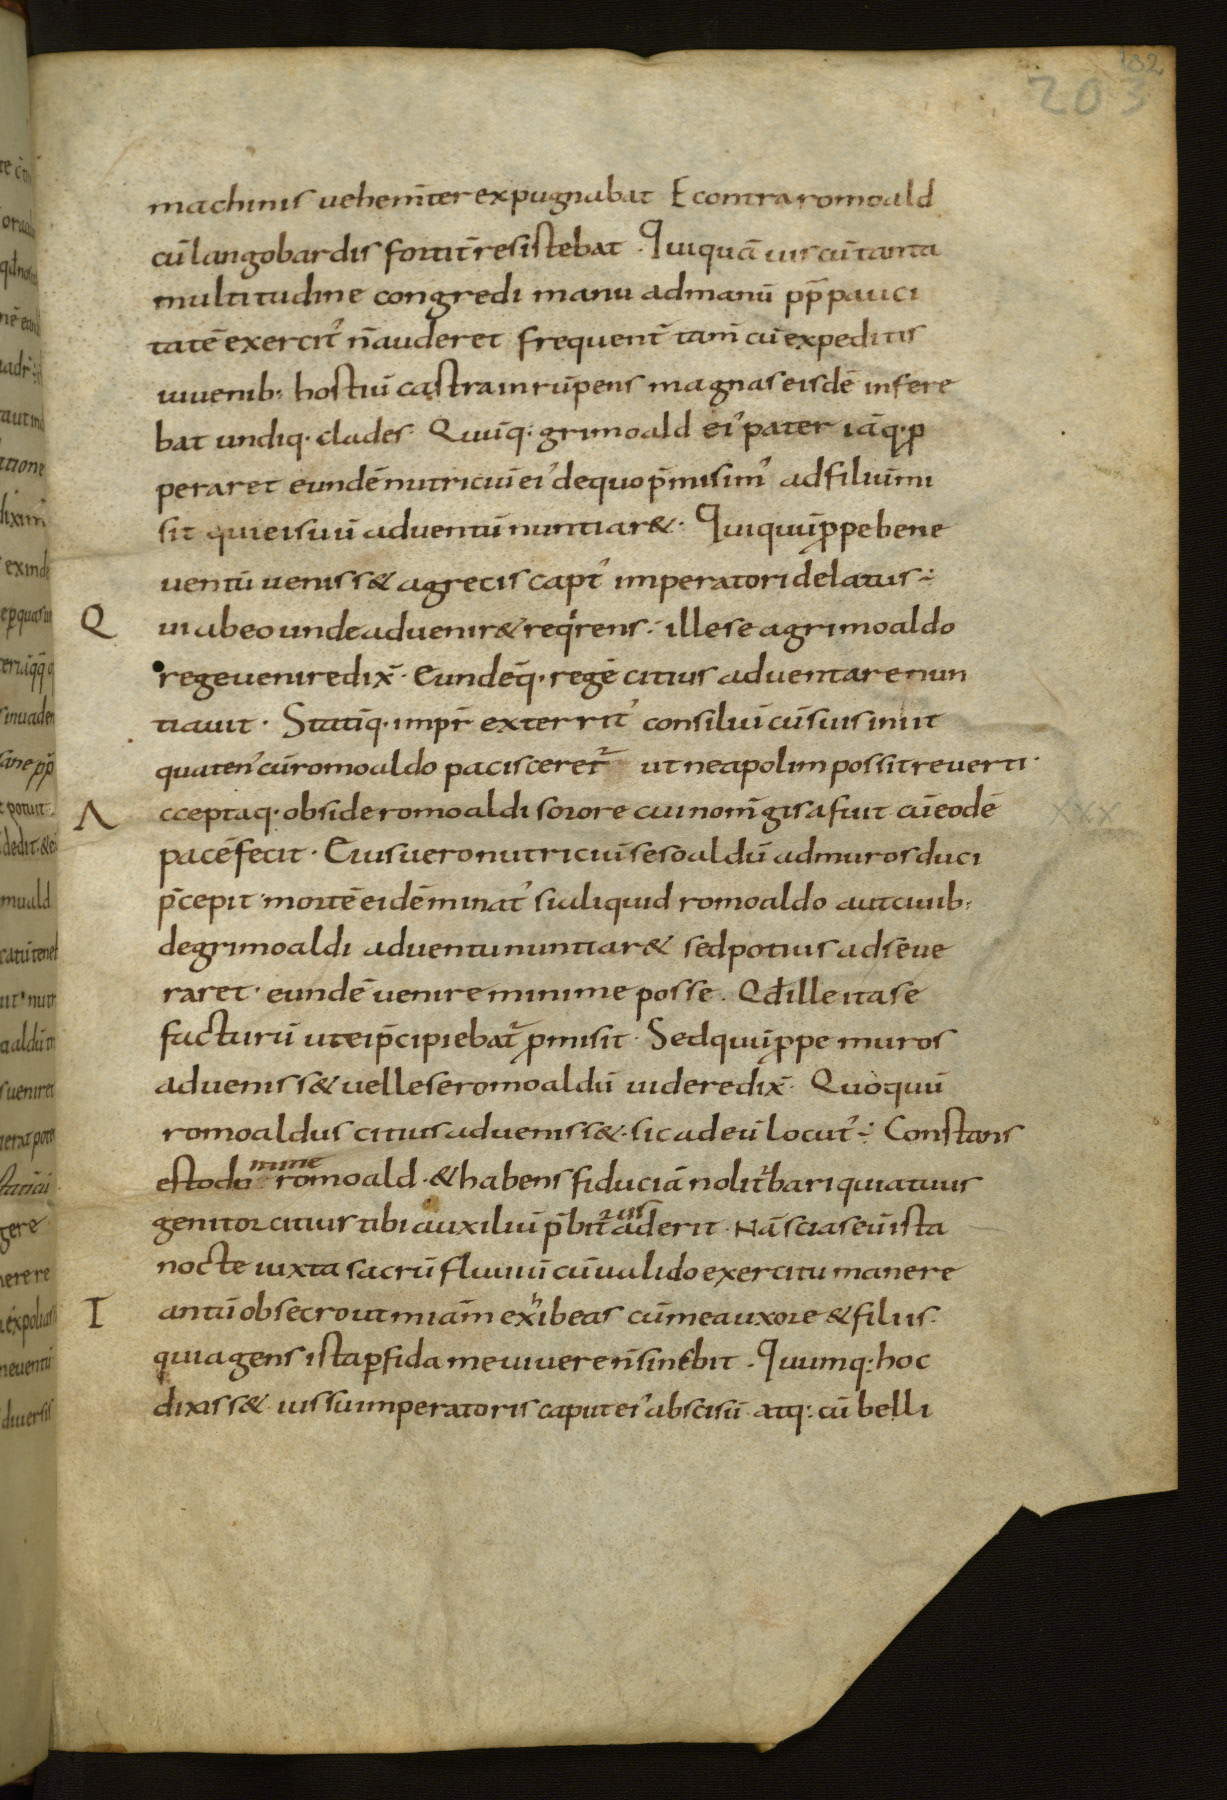 132
203
machinis uehem̄ter expugnabat E contra romoald
cū langobardis fortit̄ resistebat . Quiquā uis cū tanta
multitudine congredi manu ad manū pp̄ pauci
tatē exercit᾽ n̄ auderet frequent̄ tam̄ cū expeditis
iuuenib: hostiū castra inrūpens magnas eisdē infere
bat undiq· clades· Quūq: grimoald ei᾽ pater iāq· p
peraret eundē nutriciū ei᾽ de quo p̄misim᾽ ad filiū mi
sit qui ei suū aduentū nuntiar&· Qui quū ꝓpe bene
uentū ueniss& a grecis capt᾽ imperatori delatus ÷
Q ui ab eo unde aduenir& reqrens ÷ ille se a grimoaldo
rege uenire dix̄ · Eundēq· regē citius aduentare nun
tiauit · Statiq· impr̄ exterrit᾽ consiliū cū suis iniit
quaten᾽ cū romoaldo pacisceret᷑ ut neapolim possit reuerti ·
A cceptaq· obside romoaldi sorore cui nom̄ gisa fuit cū eodē
XXX
pacē fecit · Eius uero nutriciū sesoaldū ad muros duci
p̄cepit · mortē eidē minat᾽ si aliquid romoaldo aut ciuib:
de grimoaldi aduentu nuntiar& sed potius adseue
raret · eundē uenire minime posse . Qđ ille ita se
facturū ut ei p̄cipiebat᷑ ꝓmisit · Sed quū ꝓpe muros
adueniss& uelle se romoaldū uidere dix̄ · Quo quū
romoaldus citius adueniss& · sic ad eū locut᾽ ÷ Constans
esto domine romoald · & habens fiduciā noli t̓bari quia tuus
genitor citius tibi auxiliū p̄bit᷑us aderit · Nā scias eū ista
nocte iuxta sacrū fluuiū cū ualido exercitu manere
T antū obsecro ut m̄iam exhibeas cū mea uxore & filiis·
quia gens ista ꝑfida me uiuere n̄ sinebit . Quumq: hoc
dixiss& iussu imperatoris caput ei᾽ abscisū atq: cū belli